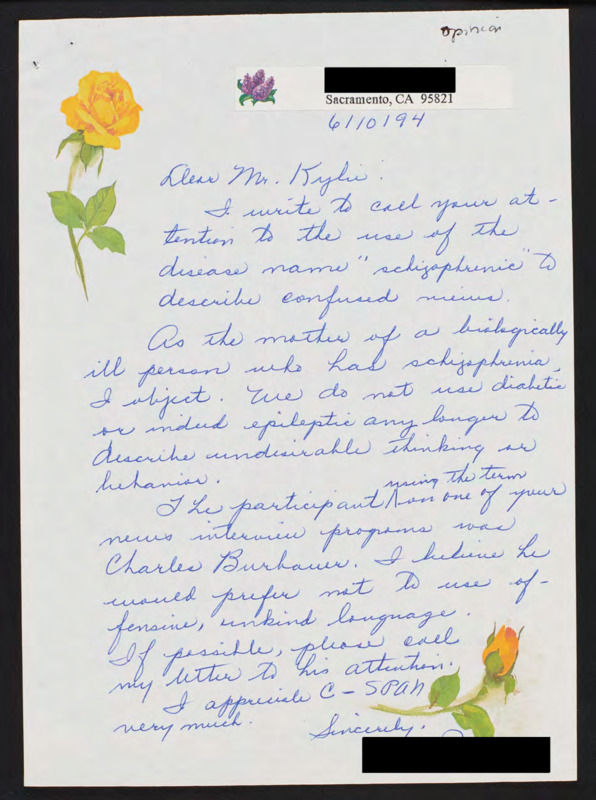 opinion
Sacramento, CA 95821
6/10/94
Dear Mr. Kylie:
I write to call your at-
tention to the use of the
disease name "schizophrenic" to
describe confused views.
As the mother of a biologically
ill person who has schizophrenia,
I object. We do not use diabetic
or indeed epileptic any longer to
describe undesirable thinking or
behavior.
using the term
The participant on one of your
news interview programs was
Charles Burbauer. I believe he
would prefer not to use of-
fensive, unkind language.
If possible, please call
my letter to his attention.
I appreciate C-SPAN
very much.
Sincerely,